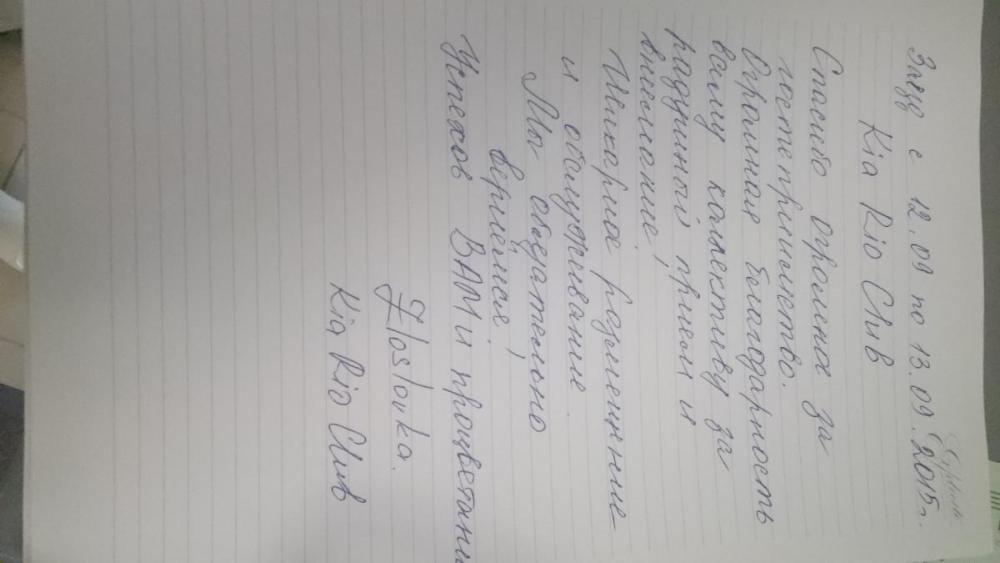 Заезд с 12.09 по 13.09.2015г.
Kia Rio Club
Спасибо огромное за
гостеприимство.
Огромная благодарность
вашему коллективу за
радушный прием и
внимание!
Шикарное размещение
и обслуживание.
Мы обязательно
вернёмся!
Успехов ВАМ и процветани
Zloslovka.
Kia Rio Club